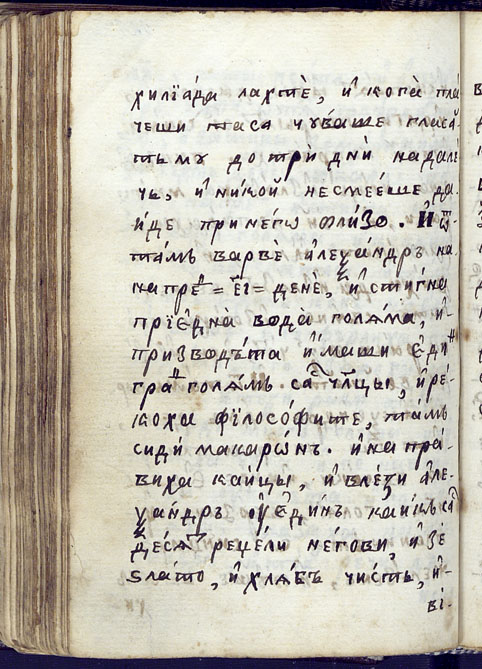 хилїа́да лахтѐ, и҆ копа̀ пла́
чеши таса чꙋ́ваше гласа́
тьмꙋ до трѝ днѝ надале́
чь, и҆ никой не смее́ше да
и҆́де при него ѡли́зо. И҆ ѿ
та́мь варвѐ а҆леѯа́ндръ на
напреⷣ = е҃і = денѐ, и҆ стигна
прїе҆днà вода̀ голѧ́ма, и҆
при водъ́та и҆́маши е҆диⷩ
граⷣ голѧ́мъ саⷭ҇ чл҃цы, и҆ ре́
коха филосо́фите, та́мь
сиди́ макарѡ́нъ. и҆ напра́
виха каи҆цы, и҆ влѣ́зи а҆ле
ѯа́ндръ ѹ҆ е҆ди́нъ каи҆къ саⷭ҇
де́сѧⷮ реце́ли не́гови, и҆ зе́
ѕла́то, и҆ хлѧ́бъ чи́стъ, и҆
ві-